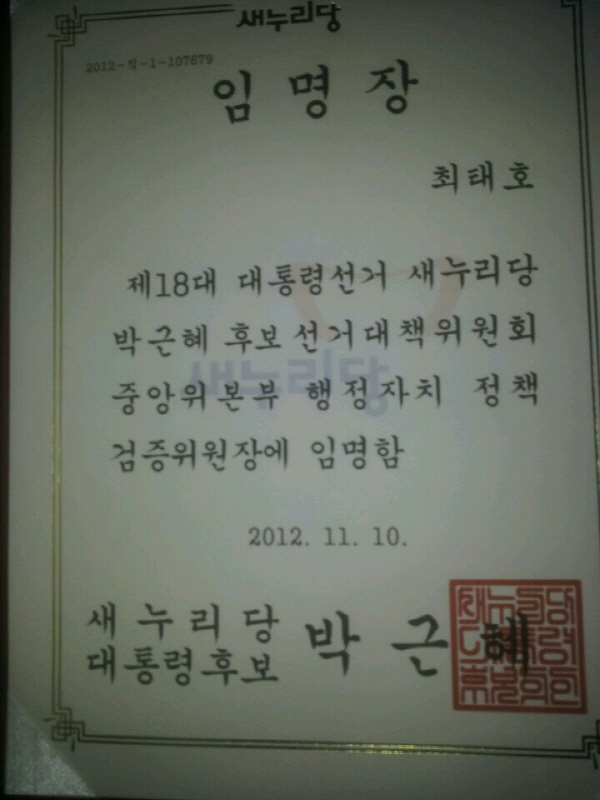 새누리당
2012-직-1-107679
임명장
최태호
제18대 대통령선거 새누리당
박근혜 후보선거대책위원회
중앙위본부 행정자치 정책
검증위원장에 임명함
새누리당
2012. 11. 10.
새누리당
대통령후보 박근혜